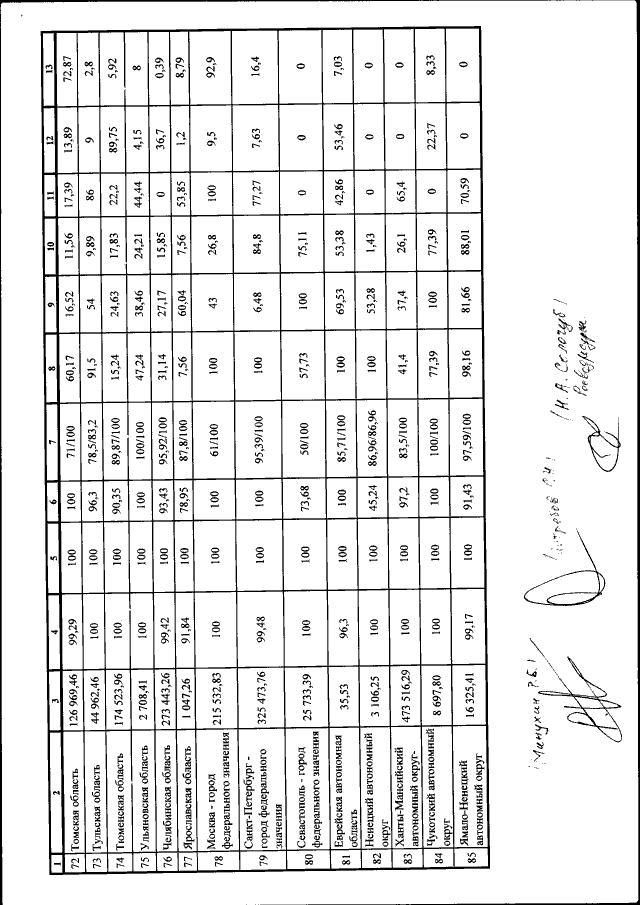 1 2 3 4 5 6 7 8 9 10 11 12 13
72 Томская область 126 969,46 99,29 100 100 71/100 60,17 16,52 11,56 17,39 13,89 72,87
73 Тульская область 44 962,46 100 100 96,3 78,5/83,2 91,5 54 9,89 86 9 2,8
74 Тюменская область 174 523,96 100 100 90,35 89,87/100 15,24 24,63 17,83 22,2 89,75 5,92
75 Ульяновская область 2 708,41 100 100 100 100/100 47,24 38,46 24,21 44,44 4,15 8
76 Челябинская область 273 443,26 99,42 100 93,43 95,92/100 31,14 27,17 15,85 0 36,7 0,39
77 Ярославская область 1 047,26 91,84 100 78,95 87,8/100 7,56 60,04 7,56 53,85 1,2 8,79
78 Москва - город
федерального значения 215 532,83 100 100 100 61/100 100 43 26,8 100 9,5 92,9
79 Санкт-Петербург -
город федерального
значения 325 473,76 99,48 100 100 95,39/100 100 6,48 84,8 77,27 7,63 16,4
80 Севастополь - город
федерального значения 25 733,39 100 100 73,68 50/100 57,73 100 75,11 0 0 0
81 Еврейская автономная
область 35,53 96,3 100 100 85,71/100 100 69,53 53,38 42,86 53,46 7,03
82 Ненецкий автономный
округ 3 106,25 100 100 45,24 86,96/86,96 100 53,28 1,43 0 0 0
83 Ханты-Мансийский
автономный округ- 473 516,29 100 100 97,2 83,5/100 41,4 37,4 26,1 65,4 0 0
84 Чукотский автономный
округ 8 697,80 100 100 100 100/100 77,39 100 77,39 0 22,37 8,33
85 Ямало-Ненецкий
автономный округ 16 325,41 99,17 100 91,43 97,59/100 98,16 81,66 88,01 70,59 0 0